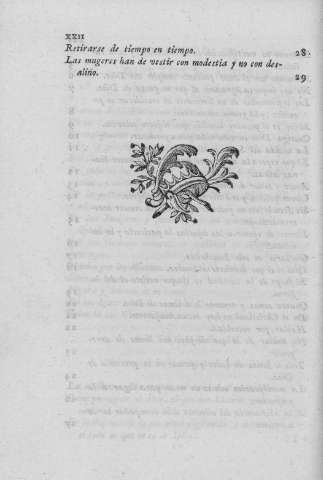 XXII
Retirarse de tiempo en tiempo. 28
Las mugeres han de vestir con modestia y no con des-
aliño. 29